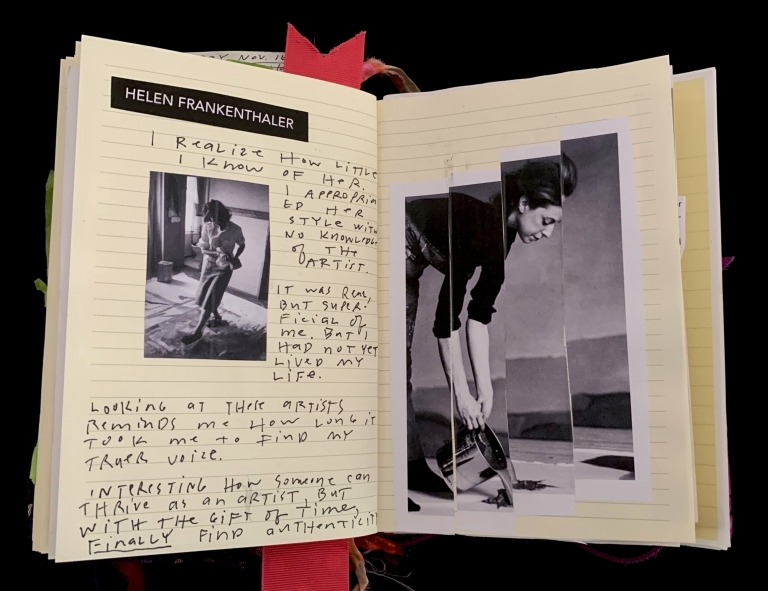 NOV. 16
HELEN FRANKENTHALER
I REALIZE HOW LITTLE
I KNOW OF HER.
I APPROPRIAT
ED HER
STYLE WITH
NO KNOWLEDGE
OF THE
ARTIST.
IT WAS REAL,
BUT SUPER-
FICIAL OF
ME. BUT I
HAD NOT YET
LIVED MY
LIFE.
LOOKING AT THESE ARTISTS
REMINDS ME HOW LONG IT
TOOK ME TO FIND MY
TRUER VOICE.
INTERESTING HOW SOMEONE CAN
THRIVE AS AN ARTIST, BUT
WITH THE GIFT OF TIME,
FINALLY FIND AUTHENTICITY